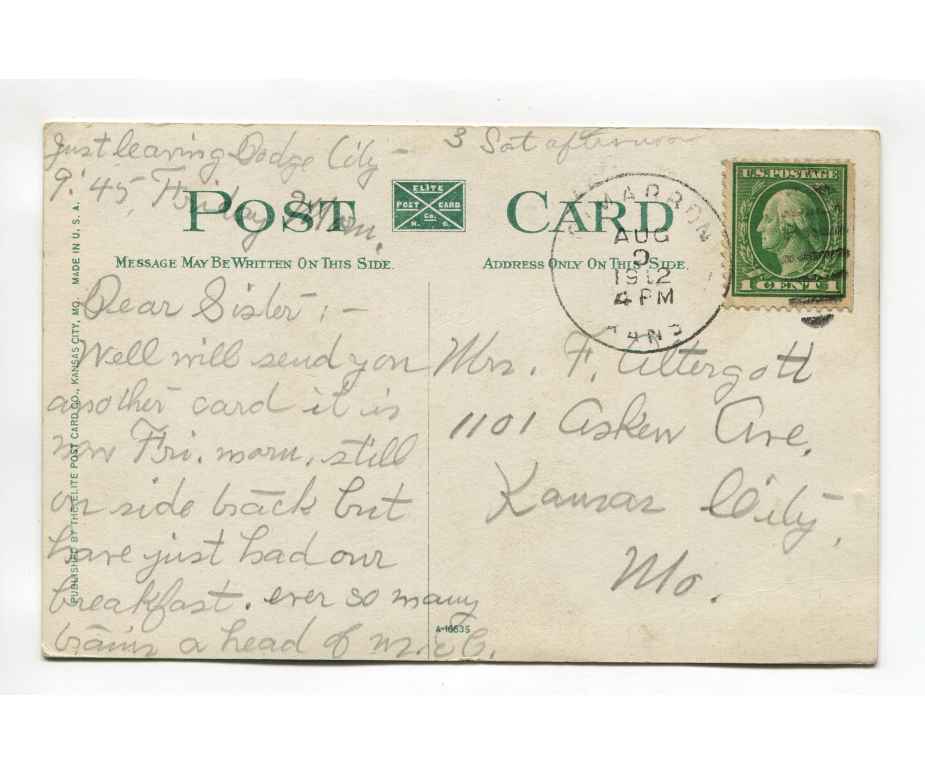 Just leaving Dodge City -
9:45, Friday Morn.
3 Sat afternoon
POST CARD
ELITE POST CARD Co. K. C.
MESSAGE MAY BE WRITTEN ON THIS SIDE.
ADDRESS ONLY ON THIS SIDE.
CIMARRON
AUG
1912
4 PM
KANS
U.S. POSTAGE
1 CENT 1
Dear Sister :-
Well will send you
another card it is
now Fri. morn. still
on side track but
have just had our
breakfast. ever so many
trains a head of us.
Mrs. F. Altergott
1101 Askew Ave.
Kansas City,
Mo.
A-16635
PUBLISHED BY THE ELITE POST CARD CO., KANSAS CITY, MO. MADE IN U. S. A.